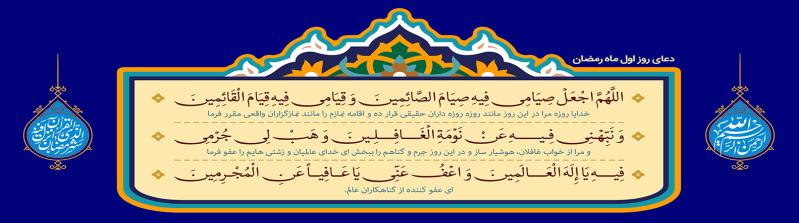 دعای روز اول ماه رمضان
اللَّهُمَّ اجْعَلْ صِيَامِي فِيهِ صِيَامَ الصَّائِمِينَ وَ قِيَامِي فِيهِ قِيَامَ الْقَائِمِينَ
خدایا روزه مرا در این روز مانند روزه روزه داران حقیقی قرار ده و اقامه نمازم را مانند نمازگزاران واقعی مقرر فرما
وَ نَبِّهْنِي فِيهِ عَنْ نَوْمَةِ الْغَافِلِينَ وَ هَبْ لِي جُرْمِي
و مرا از خواب غافلان، هوشیار ساز و در این روز جرم و گناهم را ببخش ای خدای عالمیان و زشتی هایم را عفو فرما
فِيهِ يَا إِلَهَ الْعَالَمِينَ وَ اعْفُ عَنِّي يَا عَافِياً عَنِ الْمُجْرِمِينَ
ای عفو کننده از گناهکاران عالم.